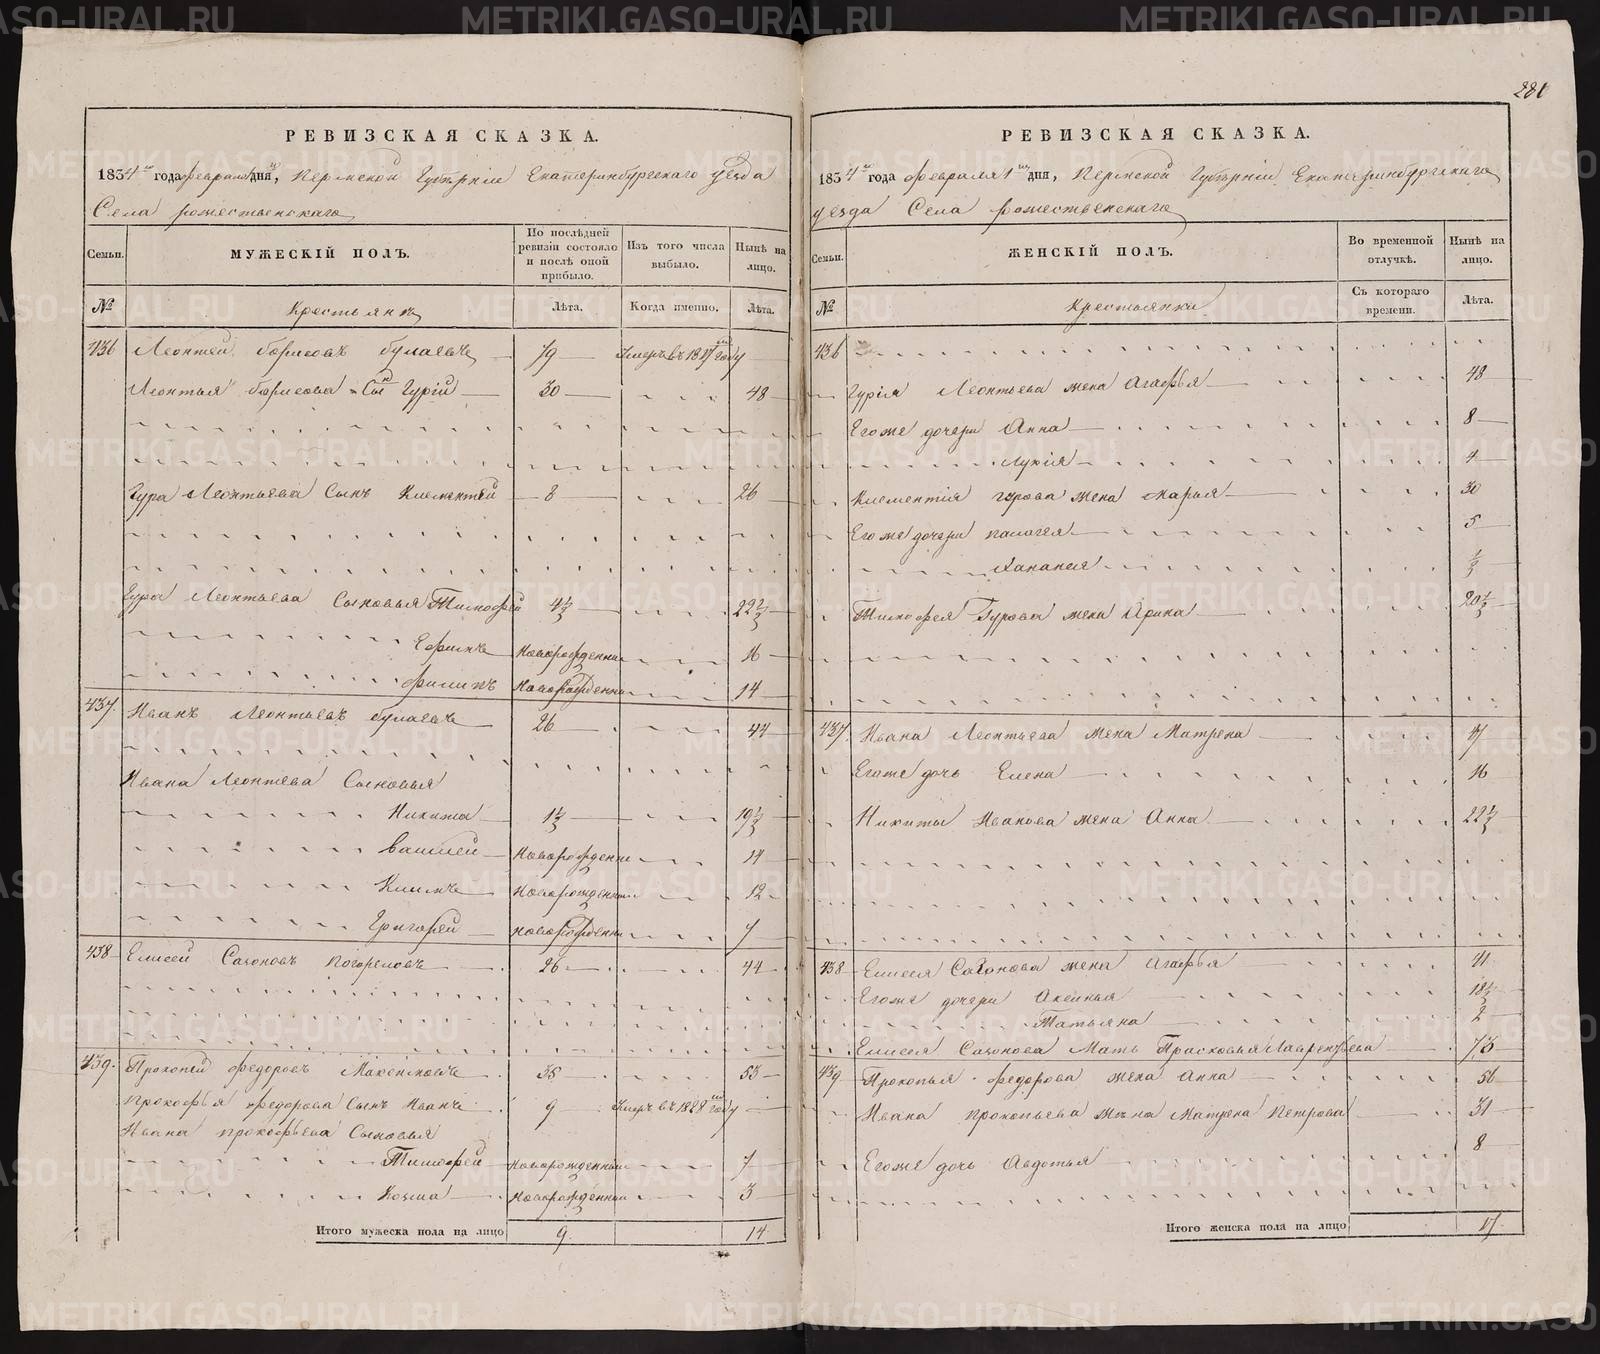 281
РЕВИЗСКАЯ СКАЗКА.
1834го года февраля 1 дня, Пермской Губерніи Екатеринбургскаго уезда
Села рожественскаго
Семьи.
МУЖЕСКІЙ ПОЛЪ.
По послѣдней ревизіи состояло и послѣ оной прибыло.
Изъ того числа выбыло.
Нынѣ на лицо.
№
Крестьянъ
Лѣта.
Когда именно.
Лѣта.
436 Леонтей борисовъ булаевъ 79 Умеръ въ 1827 году
Леонтья борисова Сынъ Гурій 30 48
Гура Леонтьева Сынъ Клементей 8 26
Гура Леонтьева Сыновья Тимофей 4½ 22½
Ефимъ Новорожденный 16
Филипъ Новорожденный 14
437. Иванъ Леонтьевъ булаевъ 26 44
Ивана Леонтева Сыновья
Никита 1½ 19½
Василей Новорожденный 14
Климъ Новорожденный 12
Григорей новорожденный 7
438 Елисей Сазоновъ погореловъ 26 44
439. Прокопей федоровъ 35 53
прокофья федорова Сынъ Иванъ 9 Умеръ въ 1828 году
Ивана прокофьева Сыновья
Тимофей новорожденный 7
Козма новорожденный 3
Итого мужеска пола на лицо 9 14
РЕВИЗСКАЯ СКАЗКА.
1834го года февраля 1го дня, Пермской Губерніи Екатеринбургскаго
уезда Села рожественскаго
Семьи.
ЖЕНСКІЙ ПОЛЪ.
Во временной отлучкѣ.
Нынѣ на лицо.
№
Крестьянки
Съ котораго времени.
Лѣта.
436
Гурія Леонтьева жена Агафья 48
Егоже дочери Анна 8
Лукія 4
Клементія гурова жена марья 30
Егоже дочери палагея 5
½
Тимофея Гурова жена Ирина 20½
437. Ивана Леонтьева жена Матрена 47
Егоже дочь Елена 16
Никиты Иванова жена Анна 22½
438 Елисея Сазонова жена Агафья 41
Егоже дочери Аксинья 18½
Татьяна 2
Елисея Сазонова Мать Прасковья Лаврентьева 73
439 Прокопья федорова жена Анна 56
Ивана прокопьева жена Матрена Петрова 31
Егоже дочь Авдотья 8
Итого женска пола на лицо 17
METRIKI.GASO-URAL.RU